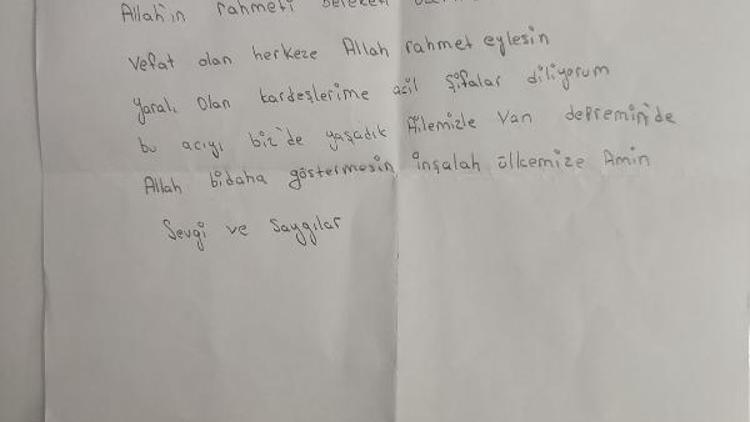 Allah'ın rahmeti bereketi
Vefat olan herkeze Allah rahmet eylesin
yaralı olan kardeşlerime acil şifalar diliyorum
bu acıyı biz'de yaşadık Ailemizle Van depremin'de
Allah bidaha göstermesin inşalah ülkemize Amin
Sevgi ve Saygılar